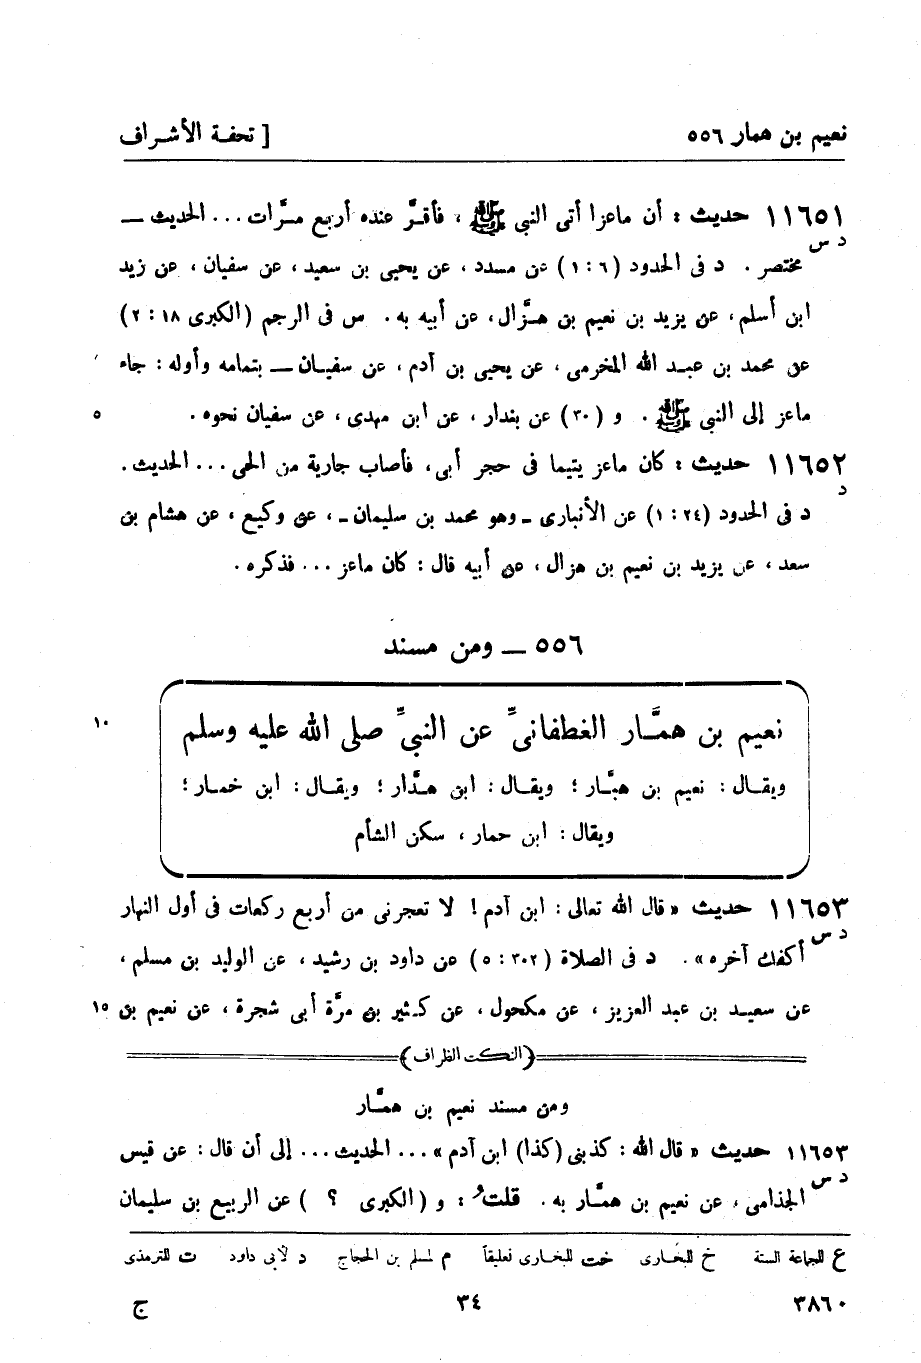 نعيم بن همار ٥٥٦ [ تحفة الأشراف
١١٦٥١ حديث : أن ماعزا أتى النبي ﷺ ، فأقرَّ عنده أربع مرَّات ... الحديث ــ
د س
مختصر . د فى الحدود (٦ : ١) عن مسدد ، عن يحيى بن سعيد ، عن سفيان ، عن زيد
ابن أسلم ، عن يزيد بن نعيم بن هزَّال ، عن أبيه به . س فى الرجم (الكبرى ١٨ : ٢)
عن محمد بن عبد الله المخرمى ، عن يحيى بن آدم ، عن سفيان ــ بتمامه وأوله : جاء
ماعز إلى النبى ﷺ . و (٣٠) عن بندار ، عن ابن مهدى ، عن سفيان نحوه . ٥
١١٦٥٢ حديث : كان ماعز يتيما فى حجر أبى ، فأصاب جارية من الحى ... الحديث .
د
د فى الحدود (٢٤ : ١) عن الأنبارى ـ وهو محمد بن سليمان ـ ، عن وكيع ، عن هشام بن
سعد ، عن يزيد بن نعيم بن هزال ، عن أبيه قال : كان ماعز ... فذكره .
٥٥٦ ــ ومن مسند
نعيم بن همَّار الغطفانىِّ عن النبىِّ صلى الله عليه وسلم ١٠
ويقال : نعيم بن هبَّار ؛ ويقال : ابن هدَّار ؛ ويقال : ابن خمار ؛
ويقال : ابن حمار ، سكن الشأم
١١٦٥٣ حديث « قال الله تعالى : ابن آدم ! لا تعجزنى من أربع ركعات فى أول النهار
د س
أكفك آخره » . د فى الصلاة (٣٠٢ : ٥) عن داود بن رشيد ، عن الوليد بن مسلم ،
عن سعيد بن عبد العزيز ، عن مكحول ، عن كثير بن مرَّة أبى شجرة ، عن نعيم بن ١٥
(النكت الظراف)
ومن مسند نعيم بن همَّار
١١٦٥٣ حديث « قال الله : كذبنى (كذا) ابن آدم » ... الحديث ... إلى أن قال : عن قيس
د س
الجذامى ، عن نعيم بن همَّار به . قلتُ : و (الكبرى ؟ ) عن الربيع بن سليمان
ع للجماعة الستة خ للبخارى خت للبخارى تعليقاً م لمسلم بن الحجاج د لأبى داود ت للترمذى
٣٨٦٠ ٣٤ ج